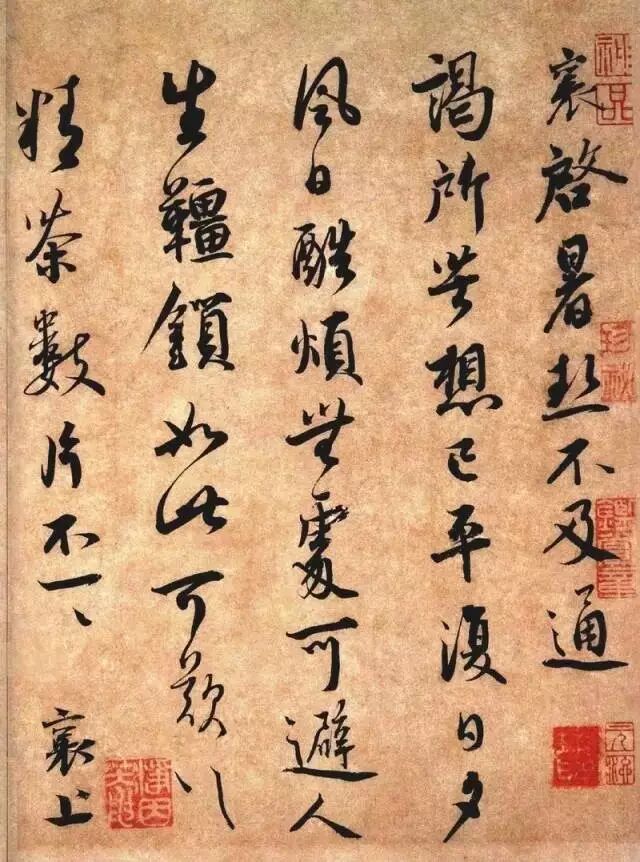 襄啓暑熱不及通
謁所苦想已平復日夕
風日酷煩無處可避人
生韁鎖如此可歎〻
精茶數片不一〻
襄上
神品